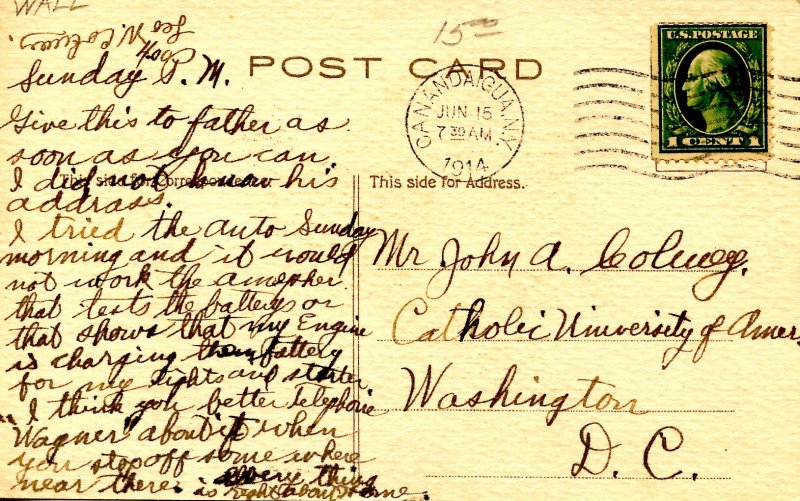 WALL
15⁰⁰
POST CARD
CANANDAIGUA, N.Y.
JUN 15
7 30 AM
1914
U.S. POSTAGE
1 CENT 1
This side for Correspondence
This side for Address.
4:00
Sunday P.M.
Give this to father as
soon as you can.
I did not know his
addrass.
I tried the auto Sunday
morning and it would
not work the
that tests the batterys or
that shows that my Engine
is charging them battery
for my lights and starter
I think you better telephone
"Wagner" about it when
you stop off some where
near there. every thing
is right about home.
Mr John A.
Catholic University of Amer
Washington
D. C.